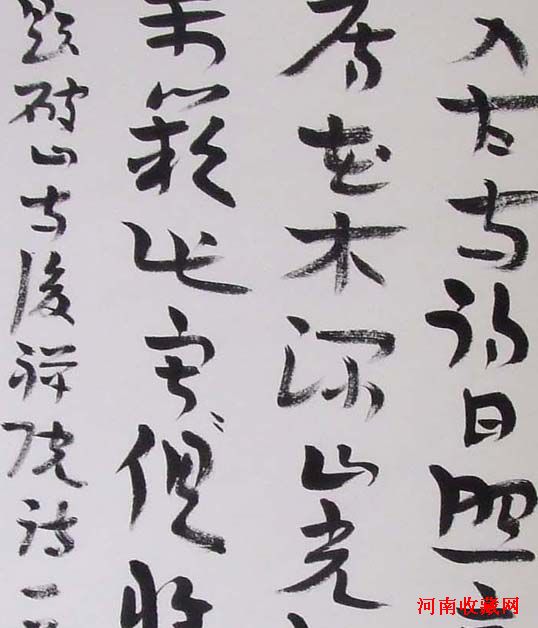 入古寺初日照高
房花木深山光
籁此寂俱
题破山寺後禅院诗一
河南收藏网